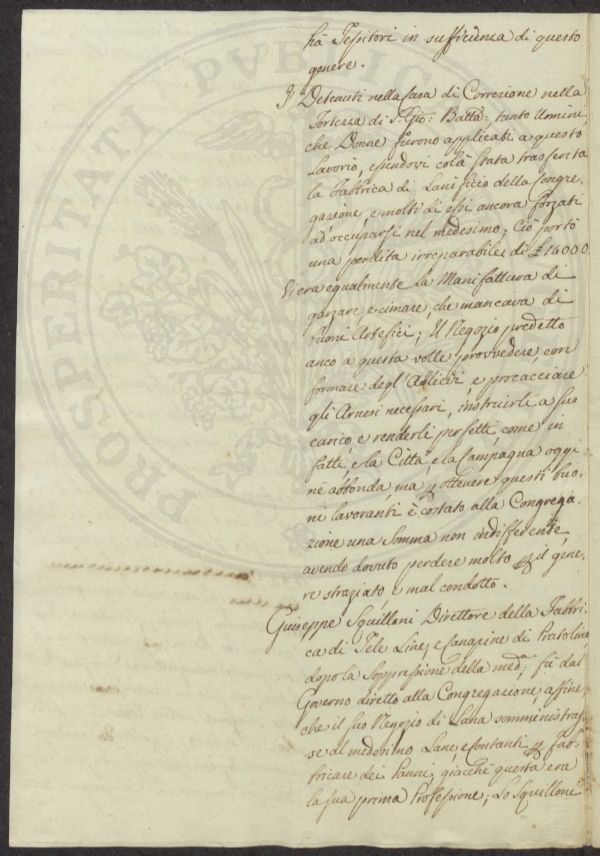 ha Tessitori in sufficienza di questo
genere.
I Detenuti nella Casa di Correzione nella
Fortezza di S. Gio: Batta: tanto Uomini,
che Donne furono applicati a questo
Lavorio, essendovi colà stata trasferita
la Fabbrica di Lanificio della Congre-
gazione, e molti di essi ancora forzati
ad occuparsi nel medesimo; Ciò portò
una perdita irreparabile di £ 14000.
Vi era egualmente la Manifattura di
garzare, e cimare, che mancava di
buoni Artefici; Il Negozio predetto
anco a questa volle provvedere, con
formare degl'Allievi, e procacciare
gli Arnesi necessari, instruirli a suo
carico, e renderli perfetti, come in
fatti, e la Città, e la Campagna oggi
né abbonda, ma p ottenere questi buo-
ni lavoranti è costato alla Congrega-
zione una somma non indifferente,
avendo dovuto perdere molto p il gene-
re straziato, e mal condotto.
Giuseppe Squilloni Direttore della Fabbri-
ca di Tele Line, e Canapine di Pratolino,
dopo la Soppressione della med.a; fù dal
Governo diretto alla Congregazione, affin-
che il suo Negozio di Lana somministras-
se al medesimo Lane, e contanti p fab-
bricare dei Panni, giacchè questa era
la sua prima Professione; Lo Squilloni
PROSPERITATI PVBLICAE